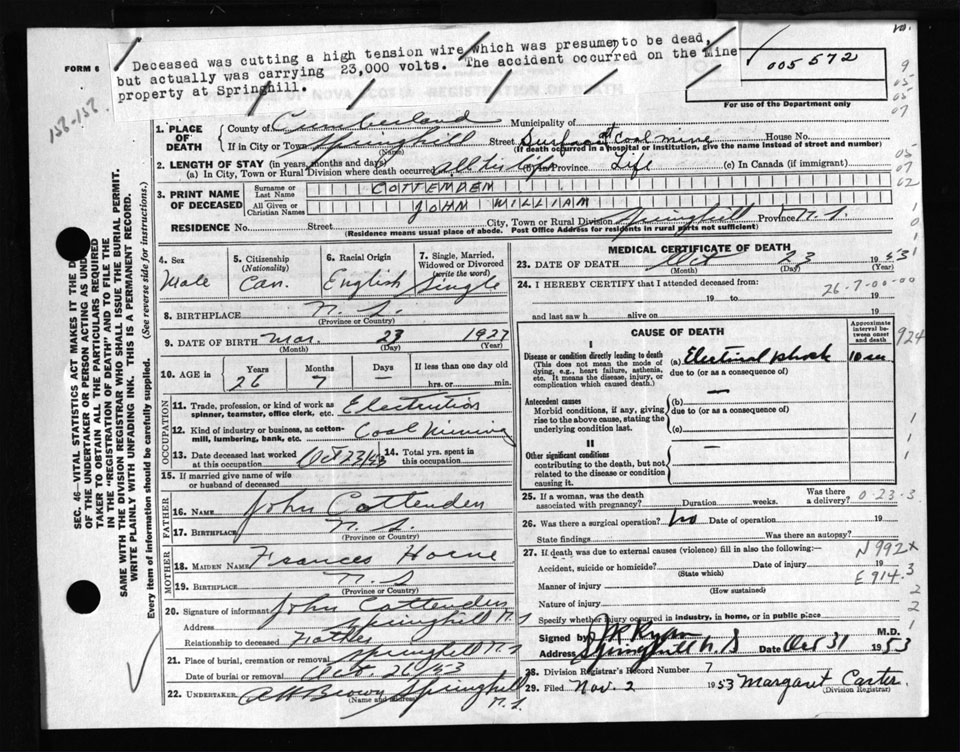 Deceased was cutting a high tension wire which was presume to be dead,
but actually was carrying 23,000 volts. The accident occurred on the Mine
property at Springhill.
FORM 6
005572
For use of the Department only
156-156
REGISTRATION OF DEATH
1. PLACE OF DEATH
County of Cumberland Municipality of
If in City or Town Springhill Street Surface at Coal mine House No.
(Name) (If death occurred in a hospital or institution, give the name instead of street and number)
2. LENGTH OF STAY (in years, months and days)
(a) In City, Town or Rural Division where death occurred all his life (b) In Province Life (c) In Canada (if immigrant)
3. PRINT NAME OF DECEASED
Surname or Last Name COTTENDEN
All Given or Christian Names JOHN WILLIAM
RESIDENCE No. Street City, Town or Rural Division Springhill Province N.S.
(Residence means usual place of abode. Post Office Address for residents in rural parts not sufficient)
4. Sex Male
5. Citizenship (Nationality) Can.
6. Racial Origin English
7. Single, Married, Widowed or Divorced (write the word) Single
8. BIRTHPLACE N.S.
(Province or Country)
9. DATE OF BIRTH Mar. 23 1927
(Month) (Day) (Year)
10. AGE is Years 26 Months 7 Days If less than one day old hrs. or min.
OCCUPATION
11. Trade, profession, or kind of work as spinner, teamster, office clerk, etc. Electrician
12. Kind of industry or business, as cotton-mill, lumbering, bank, etc. Coal Mining
13. Date deceased last worked at this occupation Oct 23/53
14. Total yrs. spent in this occupation
15. If married give name of wife or husband of deceased
FATHER
16. Name John Cottenden
17. Birthplace N.S.
(Province or Country)
MOTHER
18. MAIDEN NAME Frances Horne
19. BIRTHPLACE N.S
(Province or Country)
20. Signature of informant John Cottenden
Address Springhill N.S
Relationship to deceased Father
21. Place of burial, cremation or removal Springhill N.S.
Date of burial or removal Oct. 26/53
22. UNDERTAKER A H Brown Springhill N.S.
(Name and address)
MEDICAL CERTIFICATE OF DEATH
23. DATE OF DEATH Oct 23 1953
(Month) (Day) (Year)
24. I HEREBY CERTIFY that I attended deceased from:
19 to 19
26-7-00-00
and last saw h alive on 19
CAUSE OF DEATH
Approximate interval between onset and death
924
I
Disease or condition directly leading to death (a) Electrical shock 10 sec
(This does not mean the mode of dying, e.g., heart failure, asthenia, etc. It means the disease, injury, or complication which caused death.)
due to (or as a consequence of)
Antecedent causes (b) —
Morbid conditions, if any, giving rise to the above cause, stating the underlying condition last.
due to (or as a consequence of)
(c)
II
Other significant conditions —
contributing to the death, but not related to the disease or condition causing it.
25. If a woman, was the death associated with pregnancy? Duration weeks. Was there a delivery?
0-23-3
26. Was there a surgical operation? No Date of operation 19
State findings Was there an autopsy?
27. If death was due to external causes (violence) fill in also the following:—
N992x
Accident, suicide or homicide? Date of injury 19
(State which)
E914.3
Manner of injury
(How sustained)
Nature of injury
Specify whether injury occurred in industry, in home, or in public place
Signed by J R Ryan M.D.
Address Springhill N.S Date Oct 31 1953
28. Division Registrar's Record Number 7
29. Filed Nov. 2 1953 Margaret Carter
(Division Registrar)
SEC. 46—VITAL STATISTICS ACT MAKES IT THE D
OF THE UNDERTAKER OR PERSON ACTING AS UND
TAKER TO OBTAIN ALL THE PARTICULARS REQUIRED
IN THE "REGISTRATION OF DEATH" AND TO FILE THE
SAME WITH THE DIVISION REGISTRAR WHO SHALL ISSUE THE BURIAL PERMIT.
WRITE PLAINLY WITH UNFADING INK. THIS IS A PERMANENT RECORD.
Every item of information should be carefully supplied. (See reverse side for instructions.)